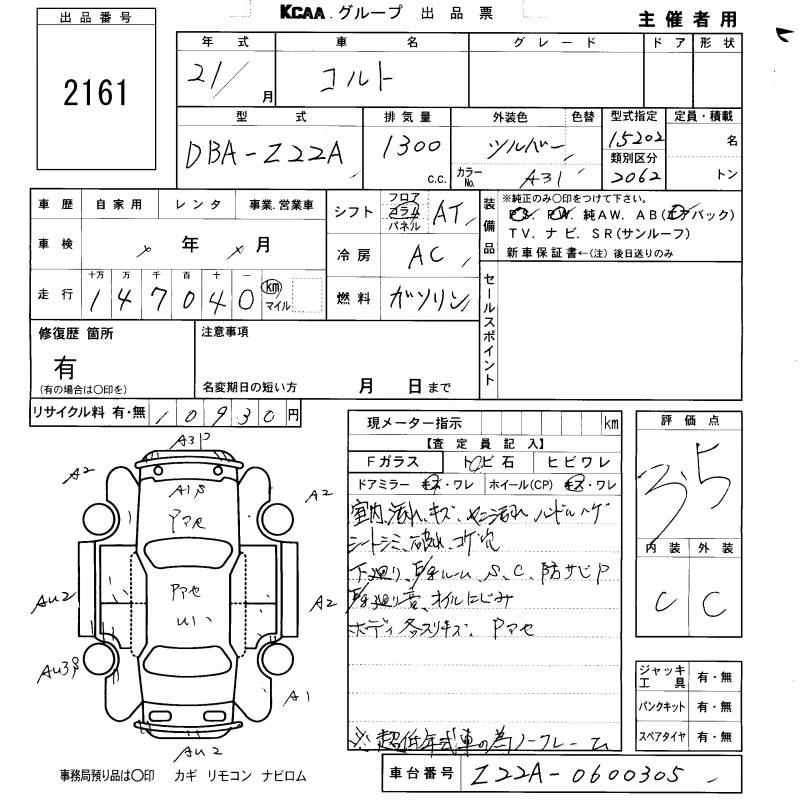 KCAA.グループ 出品票
主催者用
出品番号
2161
年式 車名 グレード ドア 形状
21/ 月 コルト
型式 排気量 外装色 色替 型式指定 定員・積載
DBA-Z22A 1300 c.c. シルバー 15202 名
類別区分
カラーNo. A31 2062 トン
車歴 自家用 レンタ 事業.営業車
車検 年 月
十万 万 千 百 十 一
走行 147040 km マイル
シフト フロア コラム パネル AT
冷房 AC
燃料 ガソリン
装備品 ※純正のみ○印をつけて下さい。
PS. PW. 純AW. AB(エアバック)
TV. ナビ. SR(サンルーフ)
新車保証書←(注) 後日送りのみ
セールスポイント
修復歴 箇所
有
(有の場合は○印を)
注意事項
名変期日の短い方 月 日まで
リサイクル料 有・無 10930円
現メーター指示 km
【査定員記入】
Fガラス トビ石 ヒビワレ
ドアミラー キズ・ワレ ホイール(CP) キズ・ワレ
室内汚れ、キズ、モニ汚れ、ハンドルハゲ
シートシミ、破れ、コゲ穴
下廻り、エンジンルーム S、C、防サビP
オイルにじみ
ボディ各スリキズ、Pマセ
※超低年式車の為ノークレーム
評価点
3.5
内装 外装
C C
ジャッキ工具 有・無
パンクキット 有・無
スペアタイヤ 有・無
A3P
A2
A1P
A2
Pマセ
Pマセ
AU2
A2
U1
AU3P
A1
AU2
事務局預り品は○印 カギ リモコン ナビロム
車台番号 Z22A-0600305